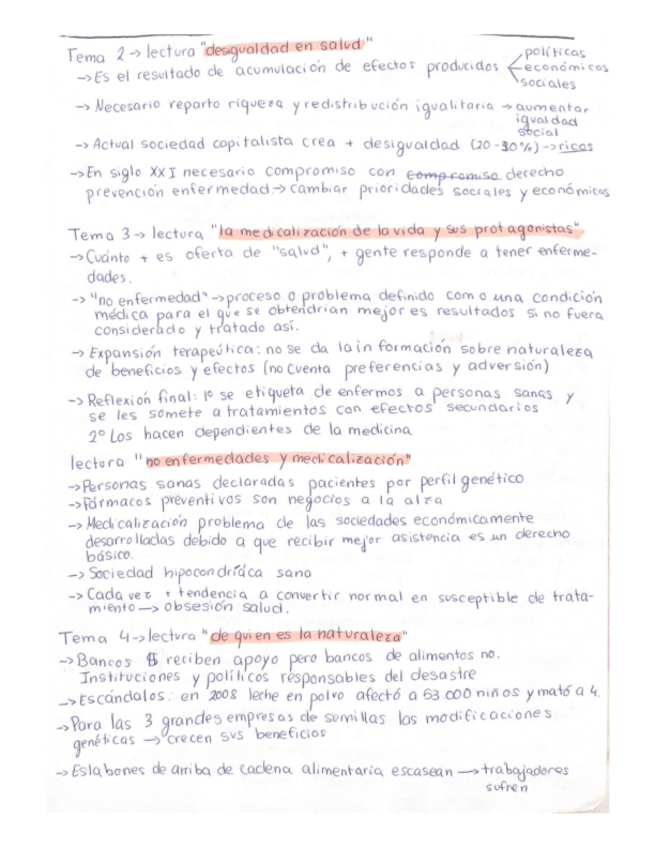 Tema 2 → lectura "desigualdad en salud"
→ Es el resultado de acumulación de efectos producidos políticas económicos sociales
→ Necesario reparto riqueza y redistribución igualitaria → aumentar igualdad social
→ Actual sociedad capitalista crea + desigualdad (20-30%) → ricos
→ En siglo XXI necesario compromiso con compromiso derecho
prevención enfermedad → cambiar prioridades sociales y económicos
Tema 3 → lectura "la medicalización de la vida y sus protagonistas"
→ Cuánto + es oferta de "salud", + gente responde a tener enferme-
dades.
→ "no enfermedad" → proceso o problema definido como una condición
médica para el que se obtendrían mejores resultados si no fuera
considerado y tratado así.
→ Expansión terapeútica: no se da la información sobre naturaleza
de beneficios y efectos (no cuenta preferencias y adversión)
→ Reflexión final: 1º se etiqueta de enfermos a personas sanas y
se les somete a tratamientos con efectos secundarios
2º Los hacen dependientes de la medicina
lectura "no enfermedades y medicalización"
→ Personas sanas declaradas pacientes por perfil genético
→ Fármacos preventivos son negocios a la alza
→ Medicalización problema de las sociedades económicamente
desarrolladas debido a que recibir mejor asistencia es un derecho
básico.
→ Sociedad hipocondríaca sano
→ Cada vez + tendencia a convertir normal en susceptible de trata-
miento → obsesión salud.
Tema 4 → lectura "de quien es la naturaleza"
→ Bancos $ reciben apoyo pero bancos de alimentos no.
Instituciones y políticos responsables del desastre
→ Escándalos: en 2008 leche en polvo afectó a 53 000 niños y mató a 4.
→ Para las 3 grandes empresas de semillas las modificaciones
genéticas → crecen sus beneficios
→ Eslabones de arriba de cadena alimentaria escasean → trabajadores
sufren